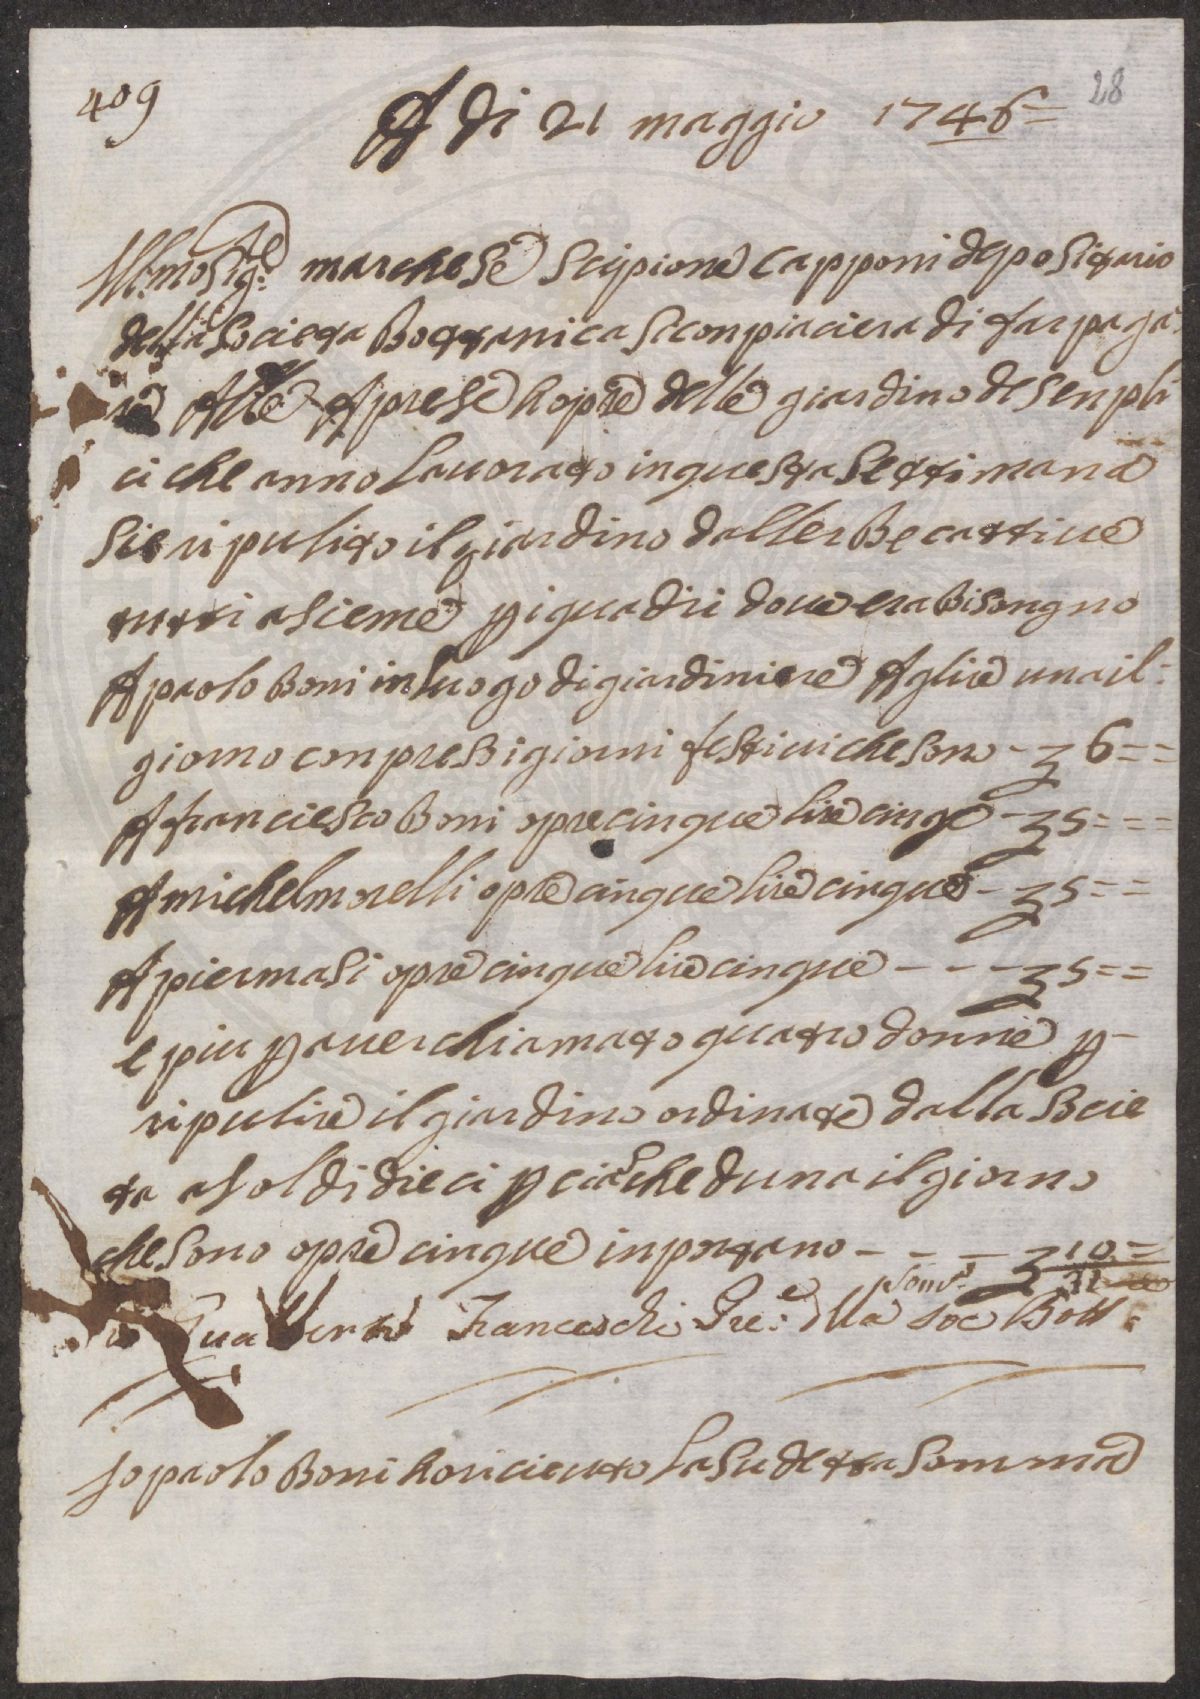 409
28
A di 21 maggio 1746=
Ill:mo Sig:re marchese Scipione Capponi depositario
della Societa Bottanica Sconpiaciera di far paga:
re Alle Aprese hopre delle giardino de Senpli
ci che anno Lauorato in questa Settimana
Sie ripulito il giardino dallerBe cattiue
tutti asieme p i quadri doue era Bisongno
A paolo Boni in luogo di giardiniere A glire una il:
giorno conpresi i giorni festiui che sono - 6==
A franciesco Boni opre cinque lire cinqe - 5===
A michel morelli opre cinque lire cinque - 5==
A pier masi opre cinque lire cinque - - - 5==
e piu p auer chiamato quatro donne p-
ripulire il giardino ordinate dalla Socie
ta a soldi dieci p ciascheduna il giorno
che sono opre cinque inportano - - - 10=
31
Gualberto Franceschi Pre: d'lla Soc Bott:
Io paolo Boni ho riceuto la sudetta somma